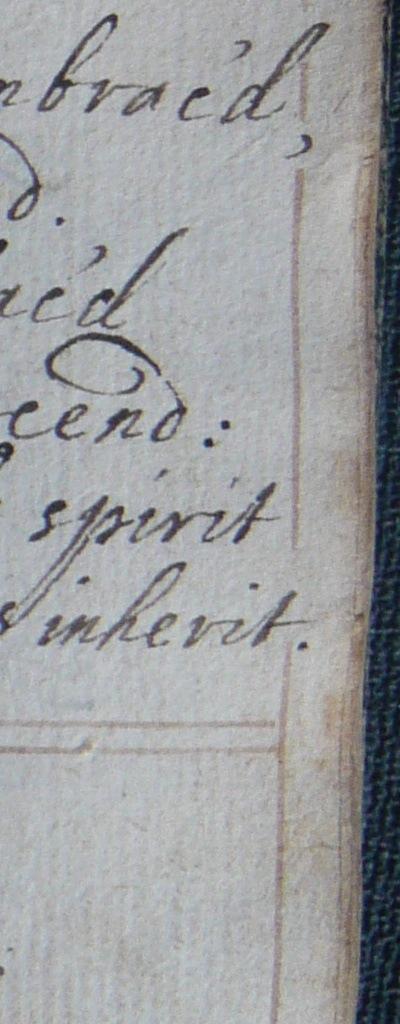 mbrac'd,
d.
ac'd
cend:
spirit
s inherit.